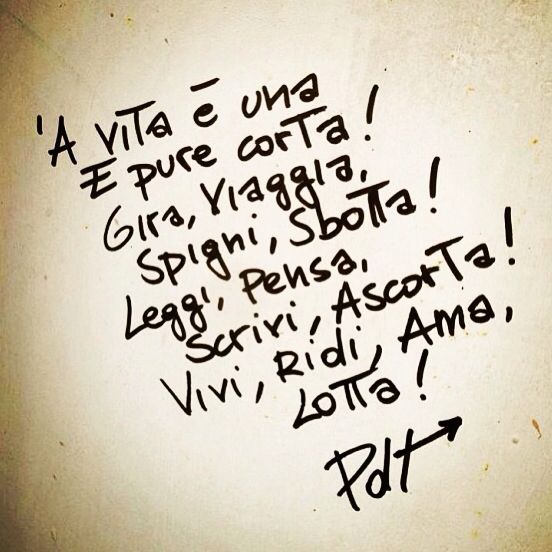 'A vita ē una
E pure corta!
Gira, viaggia,
Spigni, Sbotta!
Leggi, Pensa,
Scrivi, Ascorta!
Vivi, Ridi, Ama,
Lotta!
Pdt